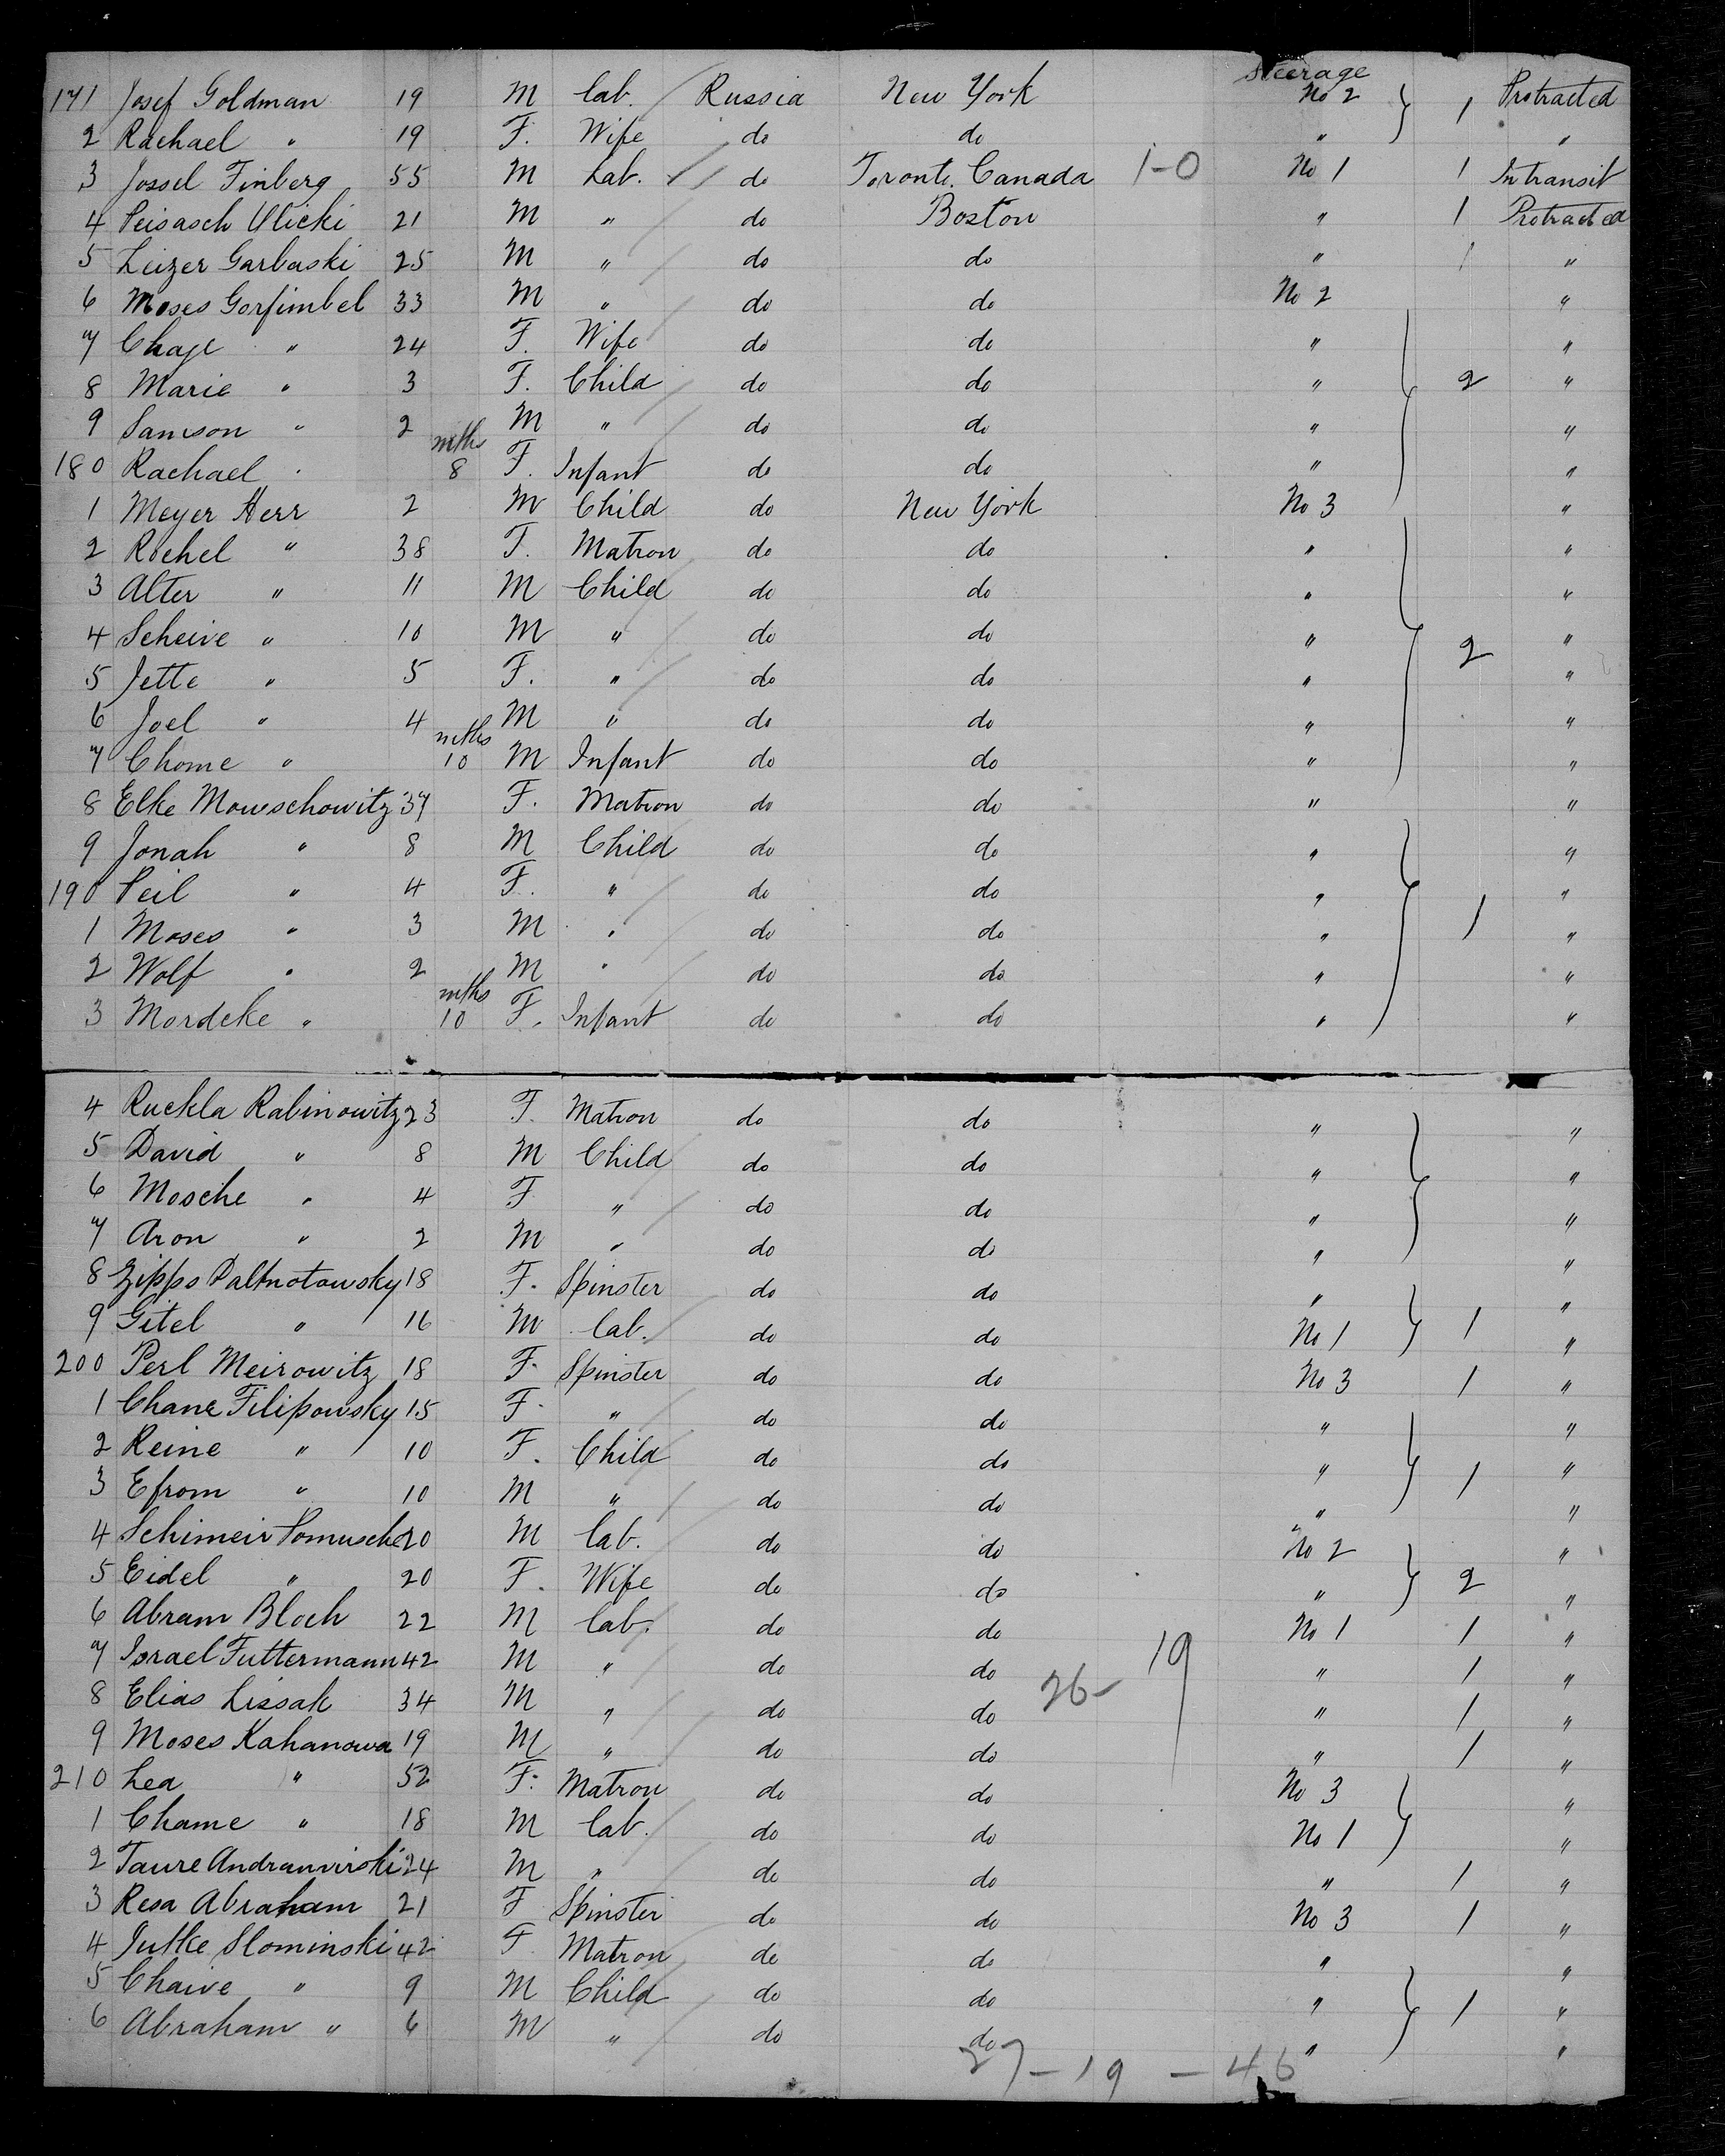 Steerage
171 Josef Goldman 19 M Lab. Russia New York No 2 1 Protracted
2 Rachael " 19 F. Wife do do " "
3 Jossel Finberg 55 M Lab. do Toronto. Canada 1-0 No 1 1 In transit
4 Peisasch Ulicki 21 M " do Boston " 1 Protracted
5 Leizer Garbaski 25 M " do do " 1 "
6 Moses Gorfimbel 33 M " do do No 2 "
7 Chaje " 24 F. Wife do do " "
8 Marie " 3 F. Child do do " 2 "
9 Samson " 2 M " do do " "
180 Rachael " mths 8 F. Infant do do " "
1 Meyer Herr 2 M Child do New York No 3 "
2 Rochel " 38 F. Matron do do " "
3 Alter " 11 M Child do do " "
4 Scheive " 10 M " do do " 2 "
5 Jette " 5 F. " do do " "
6 Joel " 4 M " do do " "
7 Chome " mths 10 M Infant do do " "
8 Elke Mowschowitz 37 F. Matron do do " "
9 Jonah " 8 M Child do do " "
190 Peil " 4 F. " do do " "
1 Moses " 3 M " do do " 1 "
2 Wolf " 2 M " do do " "
3 Mordeke " mths 10 F. Infant do do " "
4 Ruckla Rabinowitz 23 F. Matron do do " "
5 David " 8 M Child do do " "
6 Mosche " 4 F " do do " "
7 Aron " 2 M " do do " "
8 Zipps Paltnotowsky 18 F. Spinster do do " "
9 Gitel " 16 M Lab. do do No 1 1 "
200 Perl Meirowitz 18 F. Spinster do do No 3 1 "
1 Chane Filipowsky 15 F. " do do " "
2 Reine " 10 F. Child do do " "
3 Efrom " 10 M " do do " 1 "
4 Schimeir Pomusch 20 M Lab. do do No 2 "
5 Eidel " 20 F. Wife do do " 2 "
6 Abram Bloch 22 M Lab. do do No 1 1 "
7 Israel Futtermann 42 M " do do 19 " 1 "
8 Elias Lissak 34 M " do do 26- " 1 "
9 Moses Kahanowa 19 M " do do " 1 "
210 Lea " 52 F. Matron do do No 3 "
1 Chame " 18 M Lab. do do No 1 "
2 Taure 24 M " do do " 1 "
3 Resa Abraham 21 F Spinster do do No 3 1 "
4 Jutke Slominski 42 F Matron do do " "
5 Chaive " 9 M Child do do " 1 "
6 Abraham " 6 M " do do " "
27 - 19 - 46